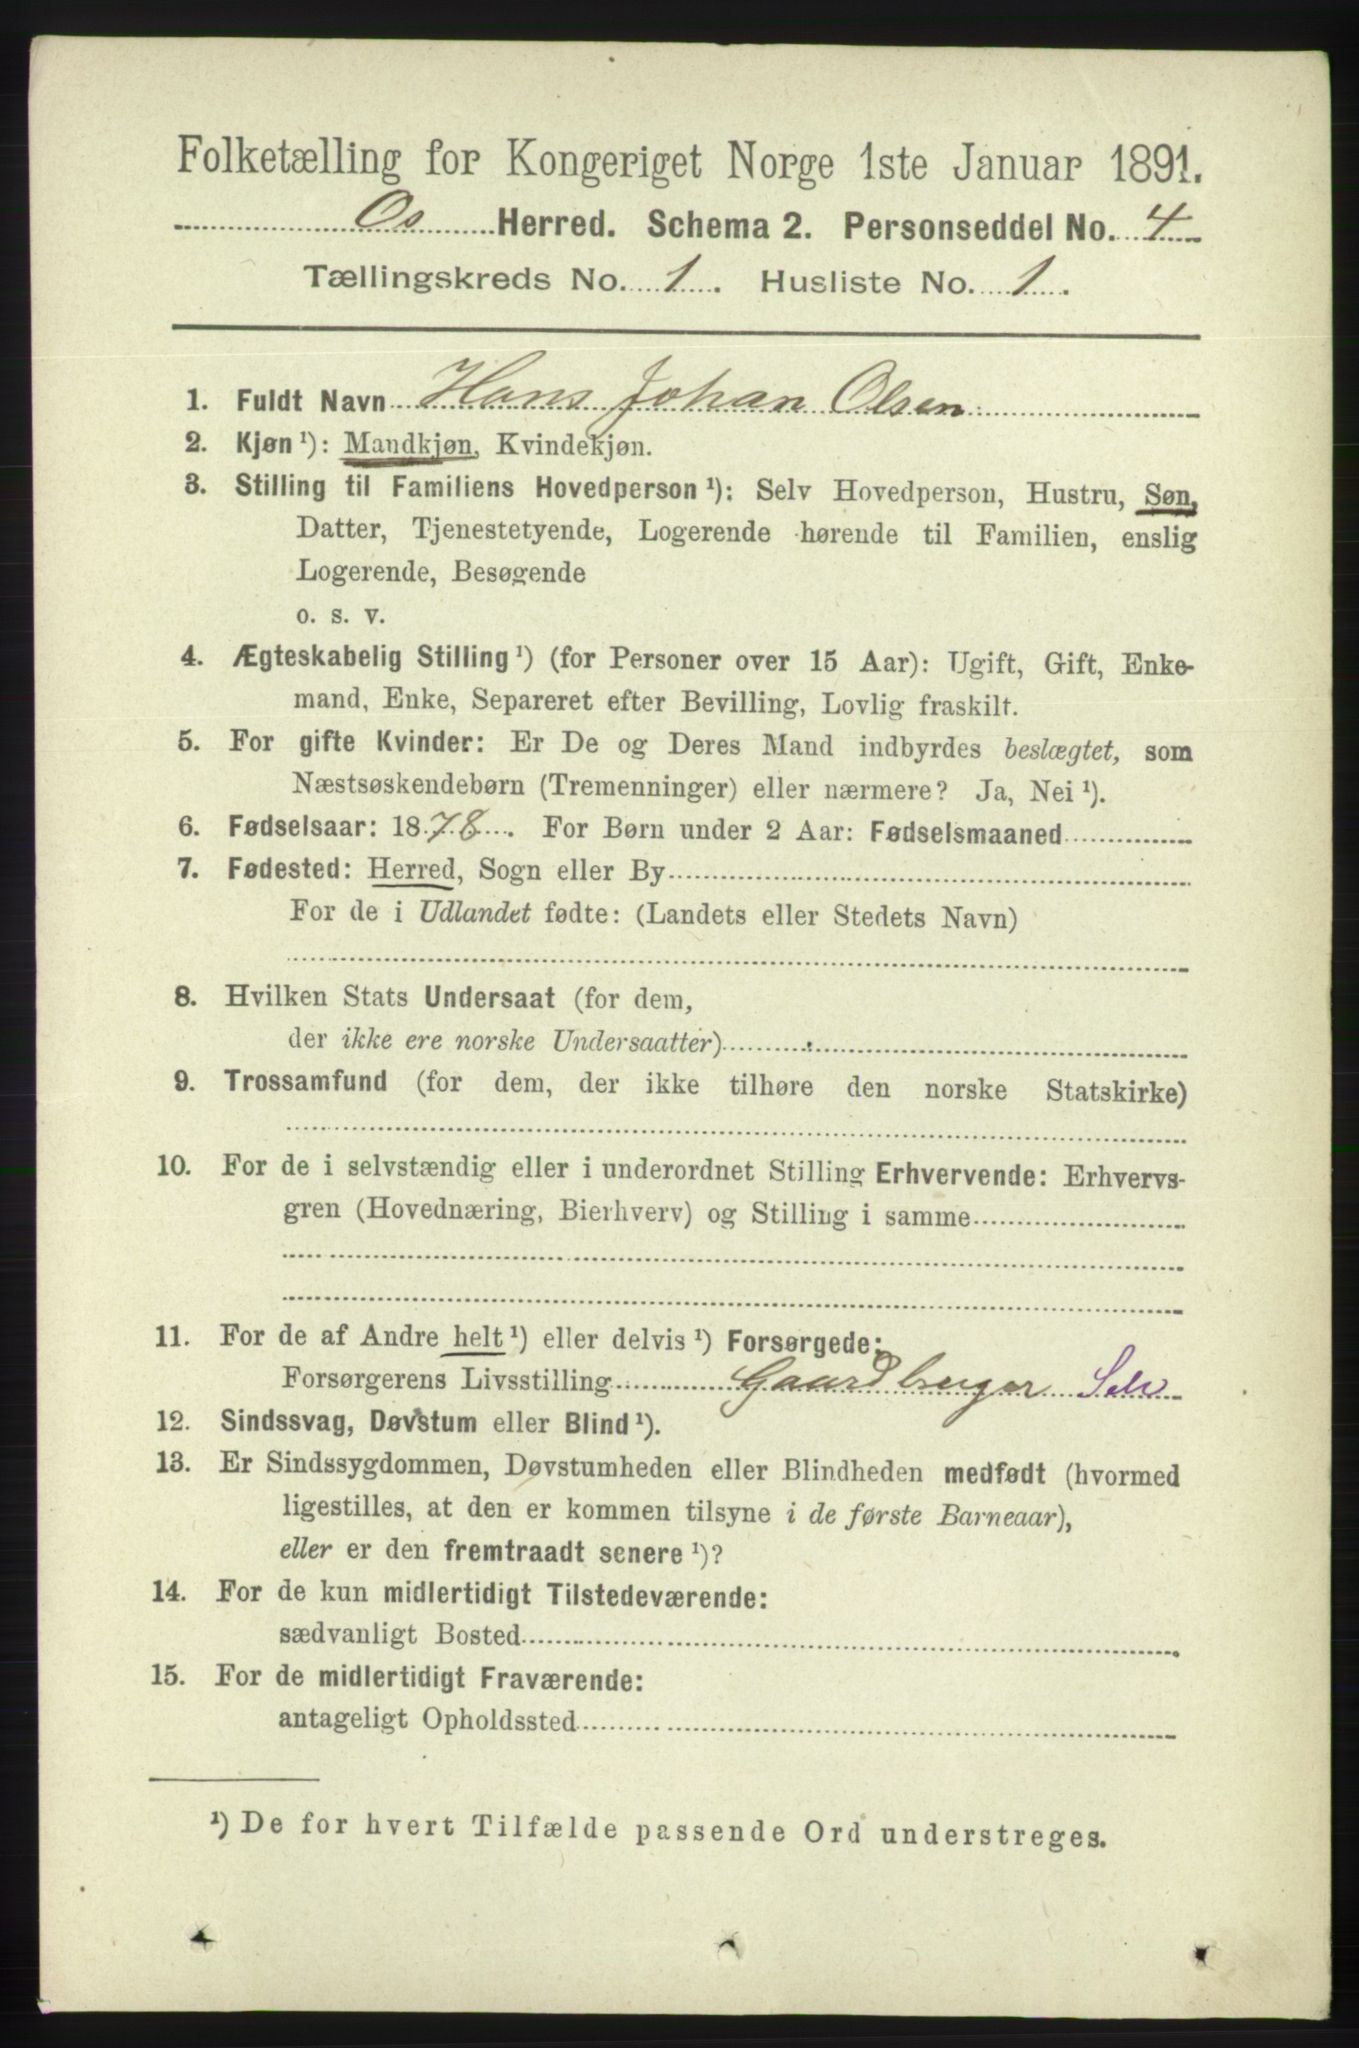 Folketælling for Kongeriget Norge 1ste Januar 1891.
Os Herred. Schema 2. Personseddel No. 4
Tællingskreds No. 1. Husliste No. 1.
1. Fuldt Navn Hans Johan Olsen
2. Kjøn ¹): Mandkjøn, Kvindekjøn.
3. Stilling til Familiens Hovedperson ¹): Selv Hovedperson, Hustru, Søn,
Datter, Tjenestetyende, Logerende hørende til Familien, enslig
Logerende, Besøgende
o. s. v.
4. Ægteskabelig Stilling ¹) (for Personer over 15 Aar): Ugift, Gift, Enke-
mand, Enke, Separeret efter Bevilling, Lovlig fraskilt.
5. For gifte Kvinder: Er De og Deres Mand indbyrdes beslægtet, som
Næstsøskendebørn (Tremenninger) eller nærmere? Ja, Nei ¹).
6. Fødselsaar: 1878. For Børn under 2 Aar: Fødselsmaaned
7. Fødested: Herred, Sogn eller By
For de i Udlandet fødte: (Landets eller Stedets Navn)
8. Hvilken Stats Undersaat (for dem,
der ikke ere norske Undersaatter)
9. Trossamfund (for dem, der ikke tilhøre den norske Statskirke)
10. For de i selvstændig eller i underordnet Stilling Erhvervende: Erhvervs-
gren (Hovednæring, Bierhverv) og Stilling i samme
11. For de af Andre helt ¹) eller delvis ¹) Forsørgede:
Forsørgerens Livsstilling Gaardbruger Selv
12. Sindssvag, Døvstum eller Blind ¹).
13. Er Sindssygdommen, Døvstumheden eller Blindheden medfødt (hvormed
ligestilles, at den er kommen tilsyne i de første Barneaar),
eller er den fremtraadt senere ¹)?
14. For de kun midlertidigt Tilstedeværende:
sædvanligt Bosted
15. For de midlertidigt Fraværende:
antageligt Opholdssted
¹) De for hvert Tilfælde passende Ord understreges.